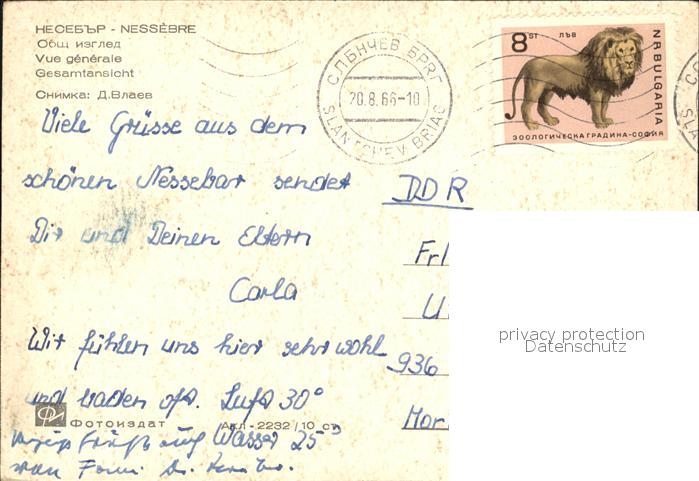 НЕСЕБЪР - NESSÈBRE
Общ изглед
Vue générale
Gesamtansicht
Снимка: Д.Влаев
СЛЪНЧЕВ БРЯГ
20.8.66-10
SLANTCHEV BRIAG
8 ST ЛЪВ
N R BULGARIA
ЗООЛОГИЧЕСКА ГРАДИНА-СОФИЯ
Viele Grüsse aus dem
schönen Nessebar sendet
Dir und Deinen Eltern
Carla
Wir fühlen uns hier sehr wohl
und baden oft. Luft 30°
Wasser 25°
von Fam.
DDR
Frl
U
936
Mar
Фотоиздат
Акл - 2232/10 ст
privacy protection
Datenschutz